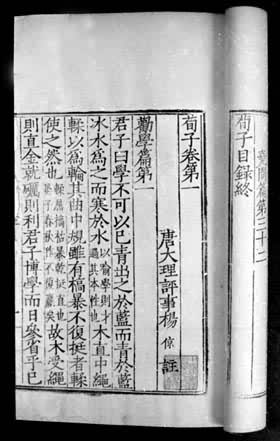 堯問篇第三十二
荀子目録終
荀子卷第一
唐大理評事楊倞註
勸學篇第一
君子曰學不可以已青出之於藍而青於藍
冰水爲之而寒於水以喻學則才過其本性也木直中繩
輮以爲輪其曲中規雖有槁暴不復挺者輮
使之然也輮屈槁枯暴乾挺直也晏子春秋作不復贏矣故木受繩
則直金就礪則利君子博學而日參省乎己